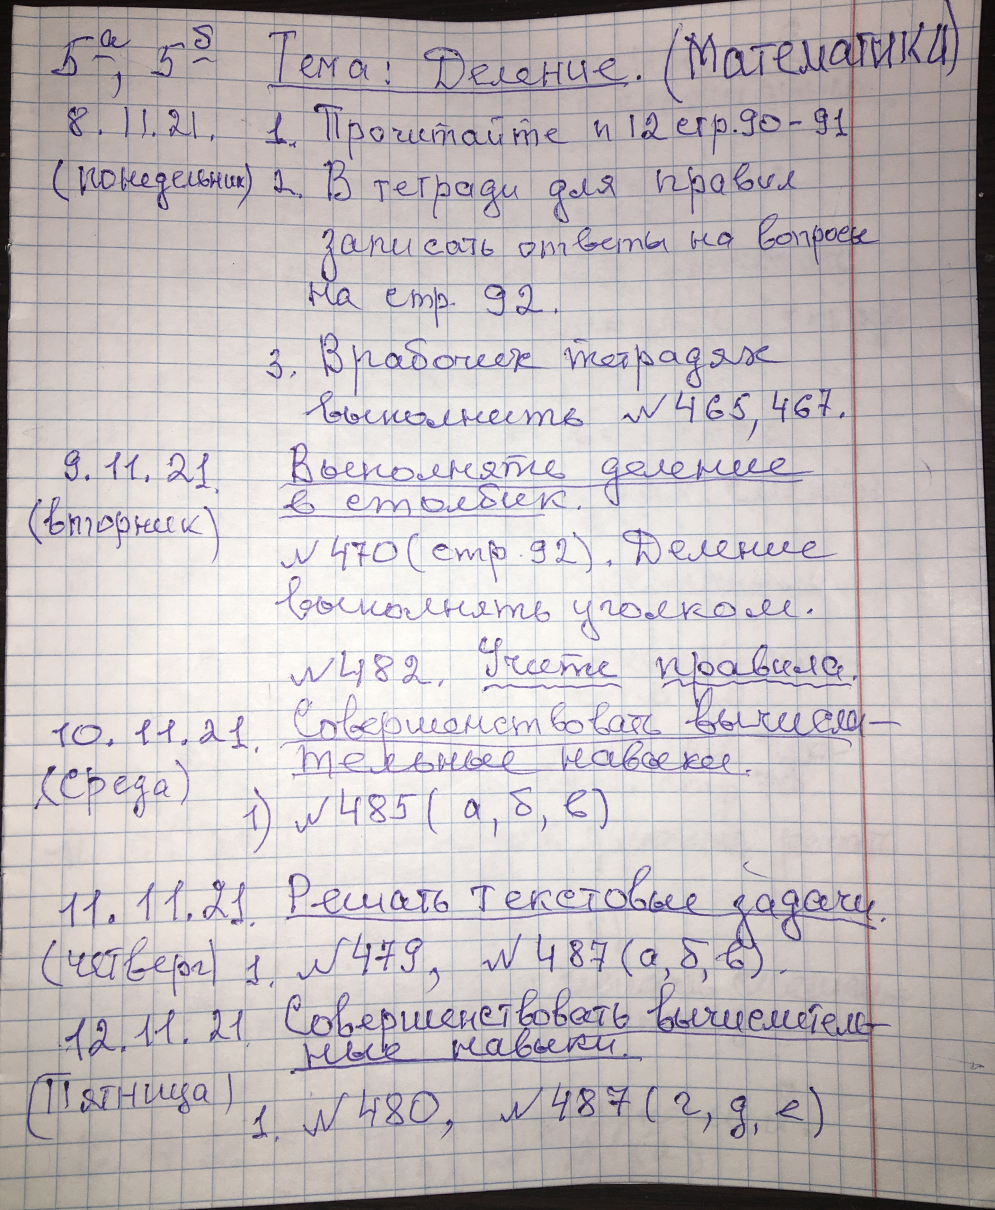 5а, 5б Тема: Деление. (Математика)
8.11.21. 1. Прочитайте п 12 стр. 90-91
(понедельник) 2. В тетради для правил
записать ответы на вопросы
на стр. 92.
3. В рабочих тетрадях
выполнить №465, 467.
9.11.21. Выполнять деление
(вторник) в столбик.
№470 (стр. 92). Деление
выполнять уголком.
№482. Учите правила.
10.11.21. Совершенствовать вычисли-
(среда) тельные навыки.
1) №485 (а, б, в)
11.11.21. Решать текстовые задачи.
(четверг) 1. №479, №487 (а, б, в).
12.11.21 Совершенствовать вычислитель-
ные навыки.
(Пятница) 1. №480, №487 (г, д, е)